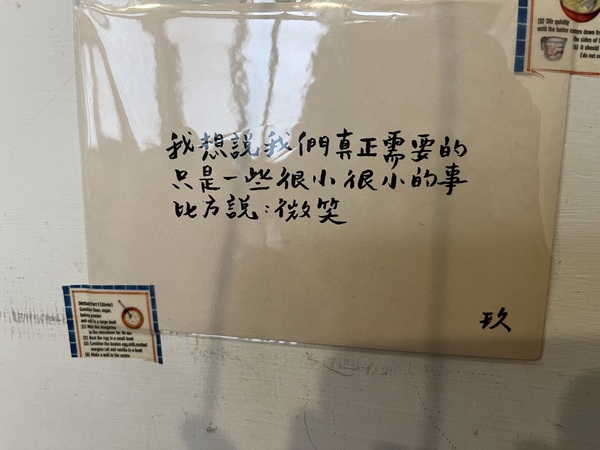 我想說我們真正需要的
只是一些很小很小的事
比方說:微笑
玖
(5) Stir quickly
until the batter comes down fr
the sides of t
(6) It should
(do not o
Method Part 1 (20 min)
Combine flour, sugar,
baking powder
and salt in a large bowl
(1) Melt the margarine
in the microwave for 30 sec
(2) Beat the egg in a small bowl
(3) Combine the beaten egg, milk, melted
margarine and vanilla in a bowl
(4) Make a well in the centre